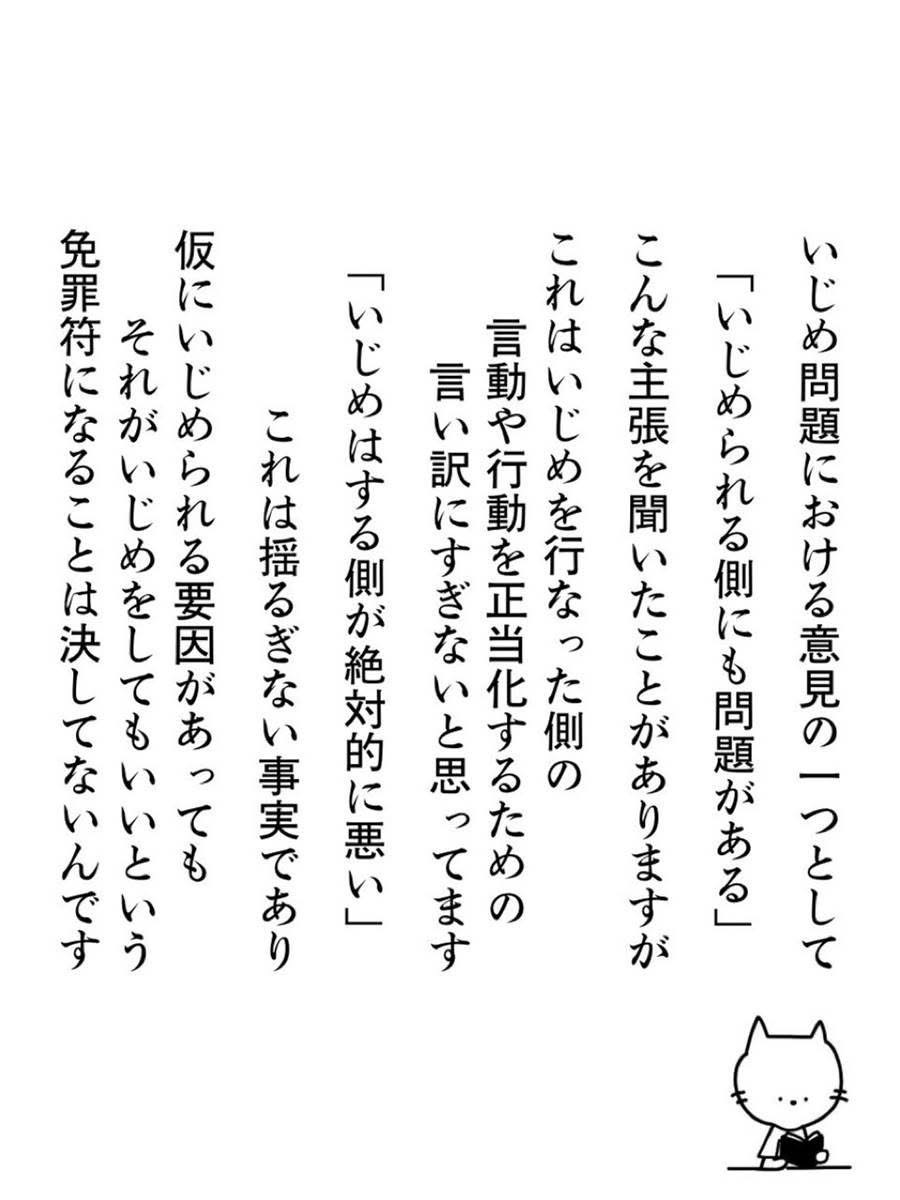 いじめ問題における意見の一つとして
「いじめられる側にも問題がある」
こんな主張を聞いたことがありますが
これはいじめを行なった側の
言動や行動を正当化するための
言い訳にすぎないと思ってます
「いじめはする側が絶対的に悪い」
これは揺るぎない事実であり
仮にいじめられる要因があっても
それがいじめをしてもいいという
免罪符になることは決してないんです